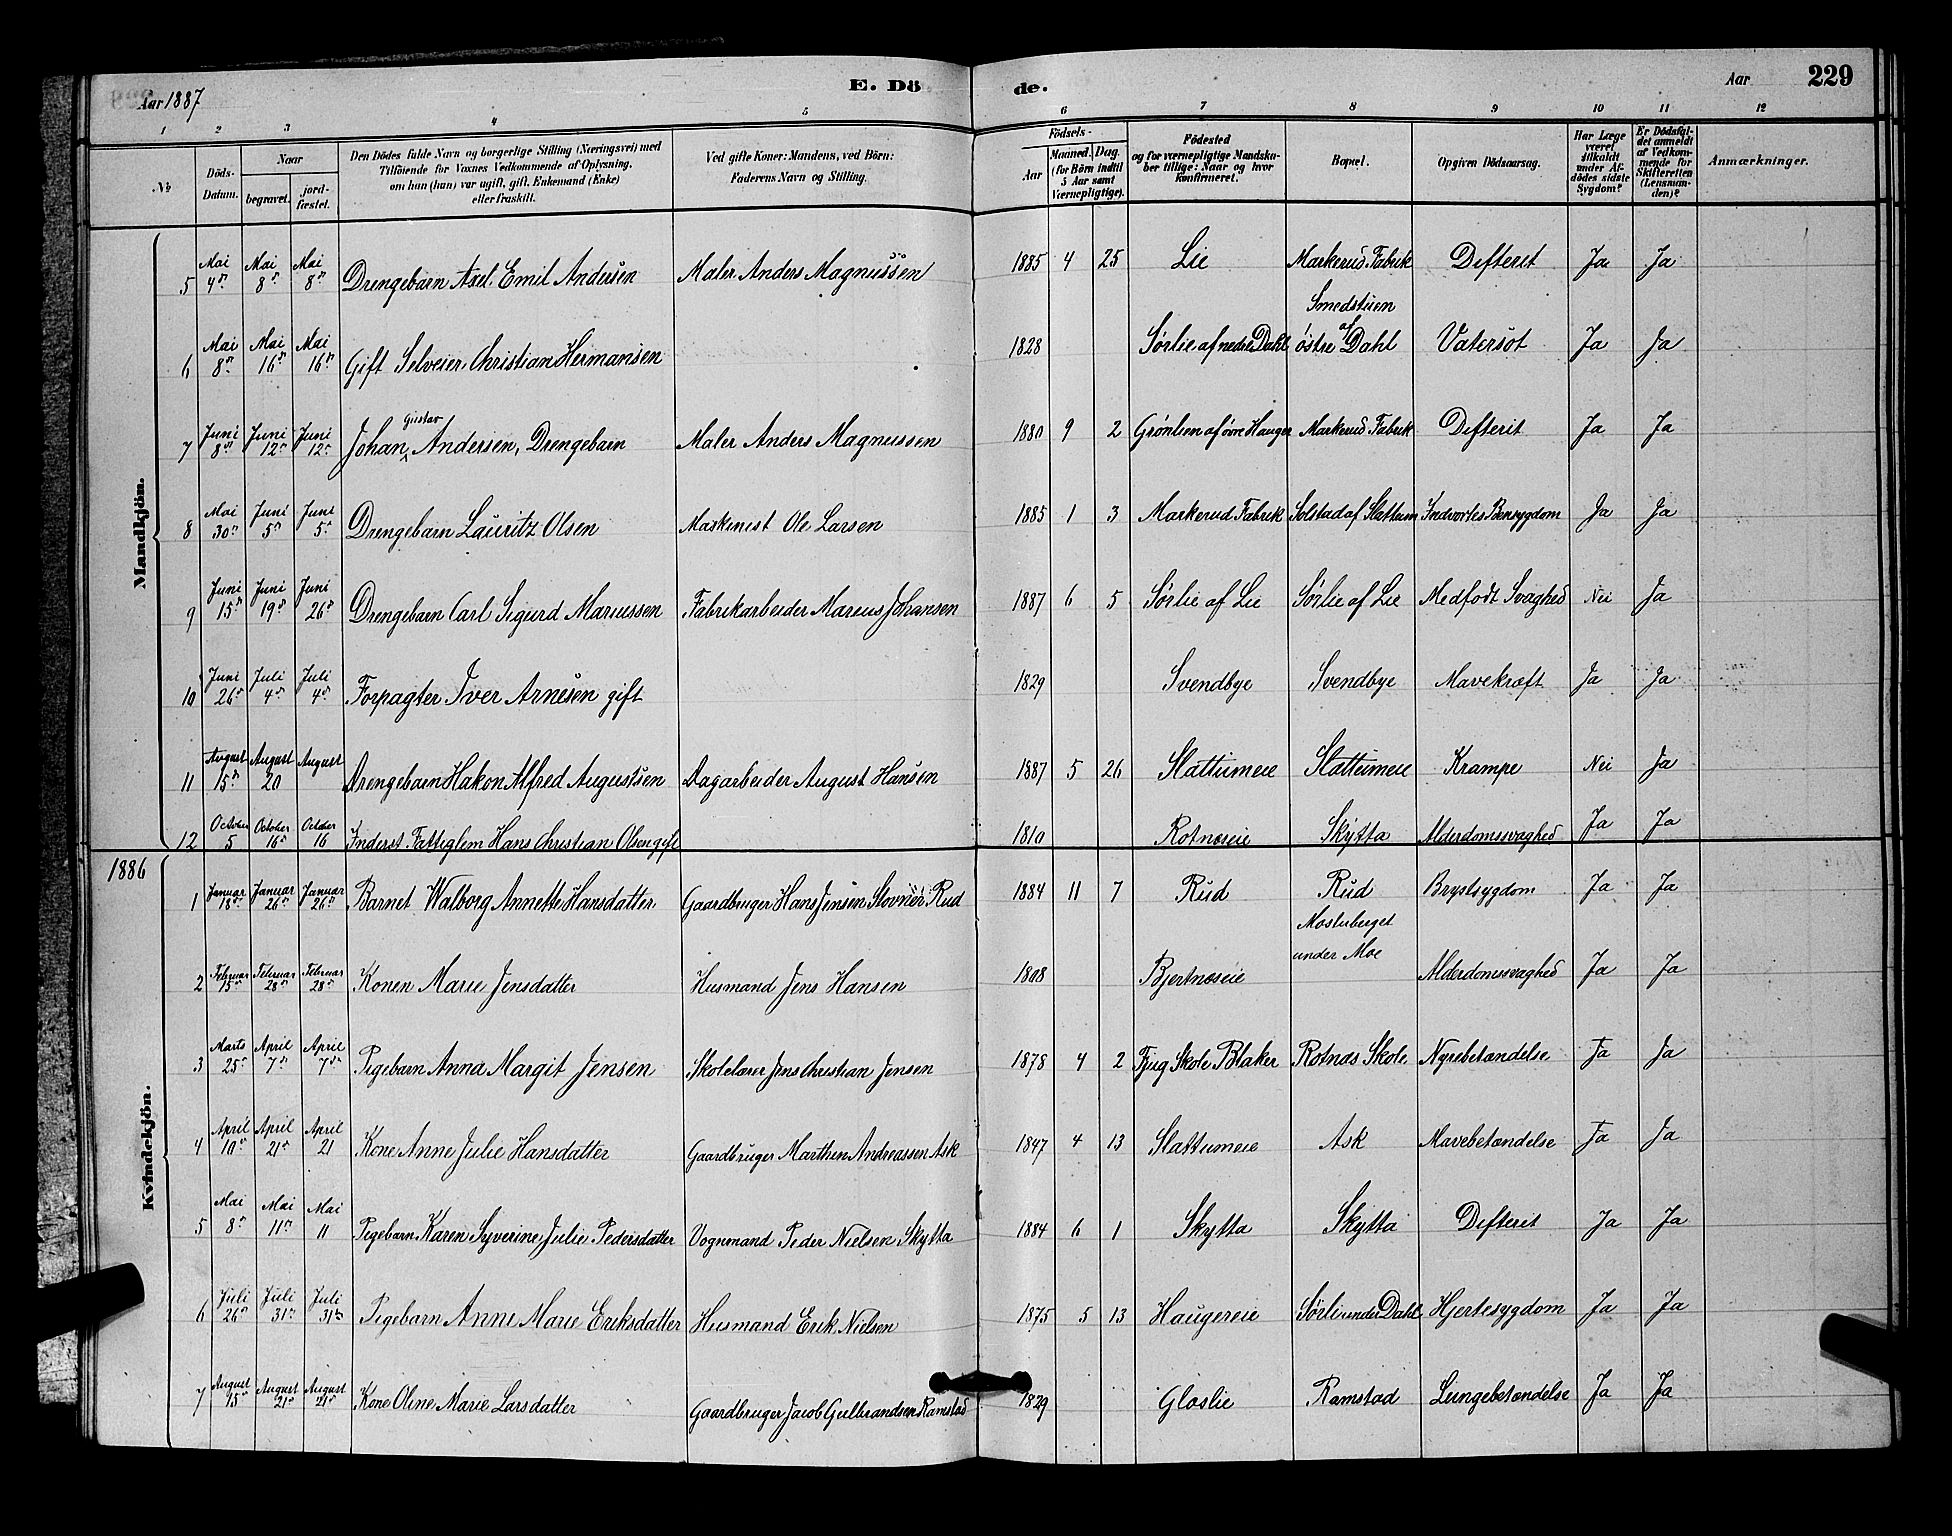 E. Dö de.
Aar 1887
Aar 229
1 2 3 4 5 6 7 8 9 10 11 12
№
Döds-Datum.
Naar begravet. jord-fæstet.
Den Dödes fulde Navn og borgerlige Stilling (Næringsvei) med Tilföiende for Voxnes Vedkommende af Oplysning, om han (hun) var ugift, gift, Enkemand (Enke) eller fraskilt.
Ved gifte Koner: Mandens, ved Börn: Faderens Navn og Stilling.
Födsels-
Aar Maaned. Dag. (for Börn indtil 5 Aar samt Værnepligtige).
Födested og for værnepligtige Mandskaber tillige: Naar og hvor konfirmeret.
Bopæl.
Opgiven Dödsaarsag.
Har Læge været tilkaldt under Afdödes sidste Sygdom?
Er Dödsfaldet anmeldt af Vedkommende for Skifteretten (Lensmanden)?
Anmærkninger.
Mandkjön.
5 Mai 4de Mai 8de Mai 8de Drengebarn Axel Emil Andersen Maler Anders Magnussen 1885 4 25 Lie Markerud Fabrik Defterit Ja Ja
6 Mai 8de Mai 16de Mai 16de Gift Selveier, Christian Hermansen 1828 Sørlie af nedre Dahl Smedstuen af østre Dahl Vatersot Ja Ja
7 Juni 8de Juni 12te Juni 12te Johan Gustav Andersen, Drengebarn Maler Anders Magnussen 1880 9 2 Grønlien af øvre Hauger Markerud Fabrik Defterit Ja Ja
8 Mai 30de Juni 5te Juni 5te Drengebarn Lauritz Olsen Maskinist Ole Larsen 1885 1 3 Markerud Fabrik Solstad af Slattum Indvortes Bensygdom Ja Ja
9 Juni 15de Juni 19de Juni 26de Drengebarn Carl Sigurd Mariussen Fabrikarbeider Marius Johansen 1887 6 5 Sørlie af Lie Sørlie af Lie Medfødt Svaghed Nei Ja
10 Juni 26de Juli 4de Juli 4de Forpagter Iver Arnesen gift 1829 Svendbye Svendbye Mavekræft Ja Ja
11 August 15de August 20 August Drengebarn Hakon Alfred Augustsen Dagarbeider August Hansen 1887 5 26 Slattumeie Slattumeie Krampe Nei Ja
12 October 5 October 16de October 16 Inderst Fattiglem Hans Christian Olsen gift 1810 Rotnæseie Skytta Alderdomssvaghed Ja Ja
1886
Kvindekjön.
1 Januar 18de Januar 26de Januar 26de Barnet Walborg Annette Hansdatter Gaardbruger Hans Jensen Stovner Rud 1884 11 7 Rud Rud Brystsygdom Ja Ja
2 Februar 15de Februar 28de Februar 28de Konen Marie Jensdatter Husmand Jens Hansen 1808 Bjertnæseie under Moe Alderdomssvaghed Ja Ja
3 Marts 25de April 7de April 7de Pigebarn Anna Margit Jensen Skolelærer Jens Christian Jensen 1878 4 2 Fjug Skole Blaker Rotnæs Skole Nyrebetændelse Ja Ja
4 April 10de April 21de April 21 Kone Anne Julie Hansdatter Gaardbruger Marthin Andreassen Ask 1847 4 13 Slattumeie Ask Mavebetændelse Ja Ja
5 Mai 8de Mai 11te Mai 11 Pigebarn Karen Syverine Julie Pedersdatter Vognmand Peder Nielsen Skytta 1884 6 1 Skytta Skytta Defterit Ja Ja
6 Juli 26de Juli 31te Juli 31te Pigebarn Anne Marie Eriksdatter Husmand Erik Nielsen 1875 5 13 Haugereie Sørli under Dahl Hjertesygdom Ja Ja
7 August 15 August 21de August 21de Kone Oline Marie Larsdatter Gaardbruger Jacob Gulbrandsen Ramstad 1829 Glaslie Ramstad Lungebetændelse Ja Ja